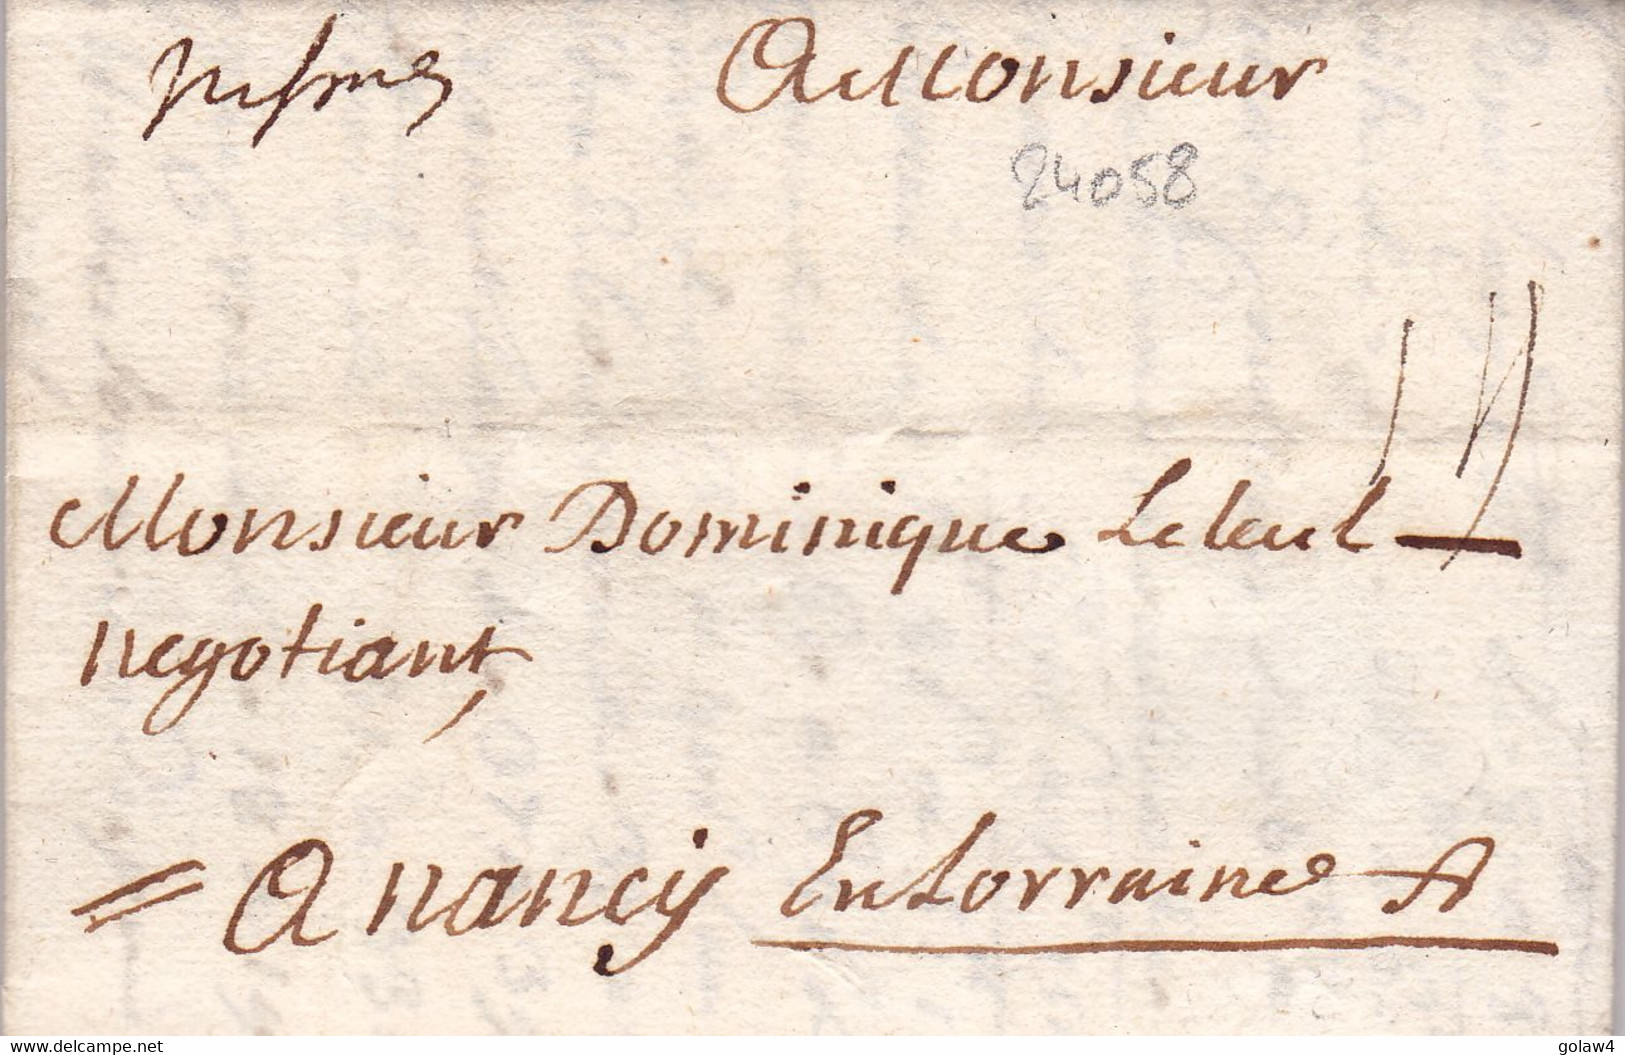 A Monsieur
24058
Monsieur Dominique
negotiant,
= A nancy En Lorraine
www.delcampe.net
golaw4